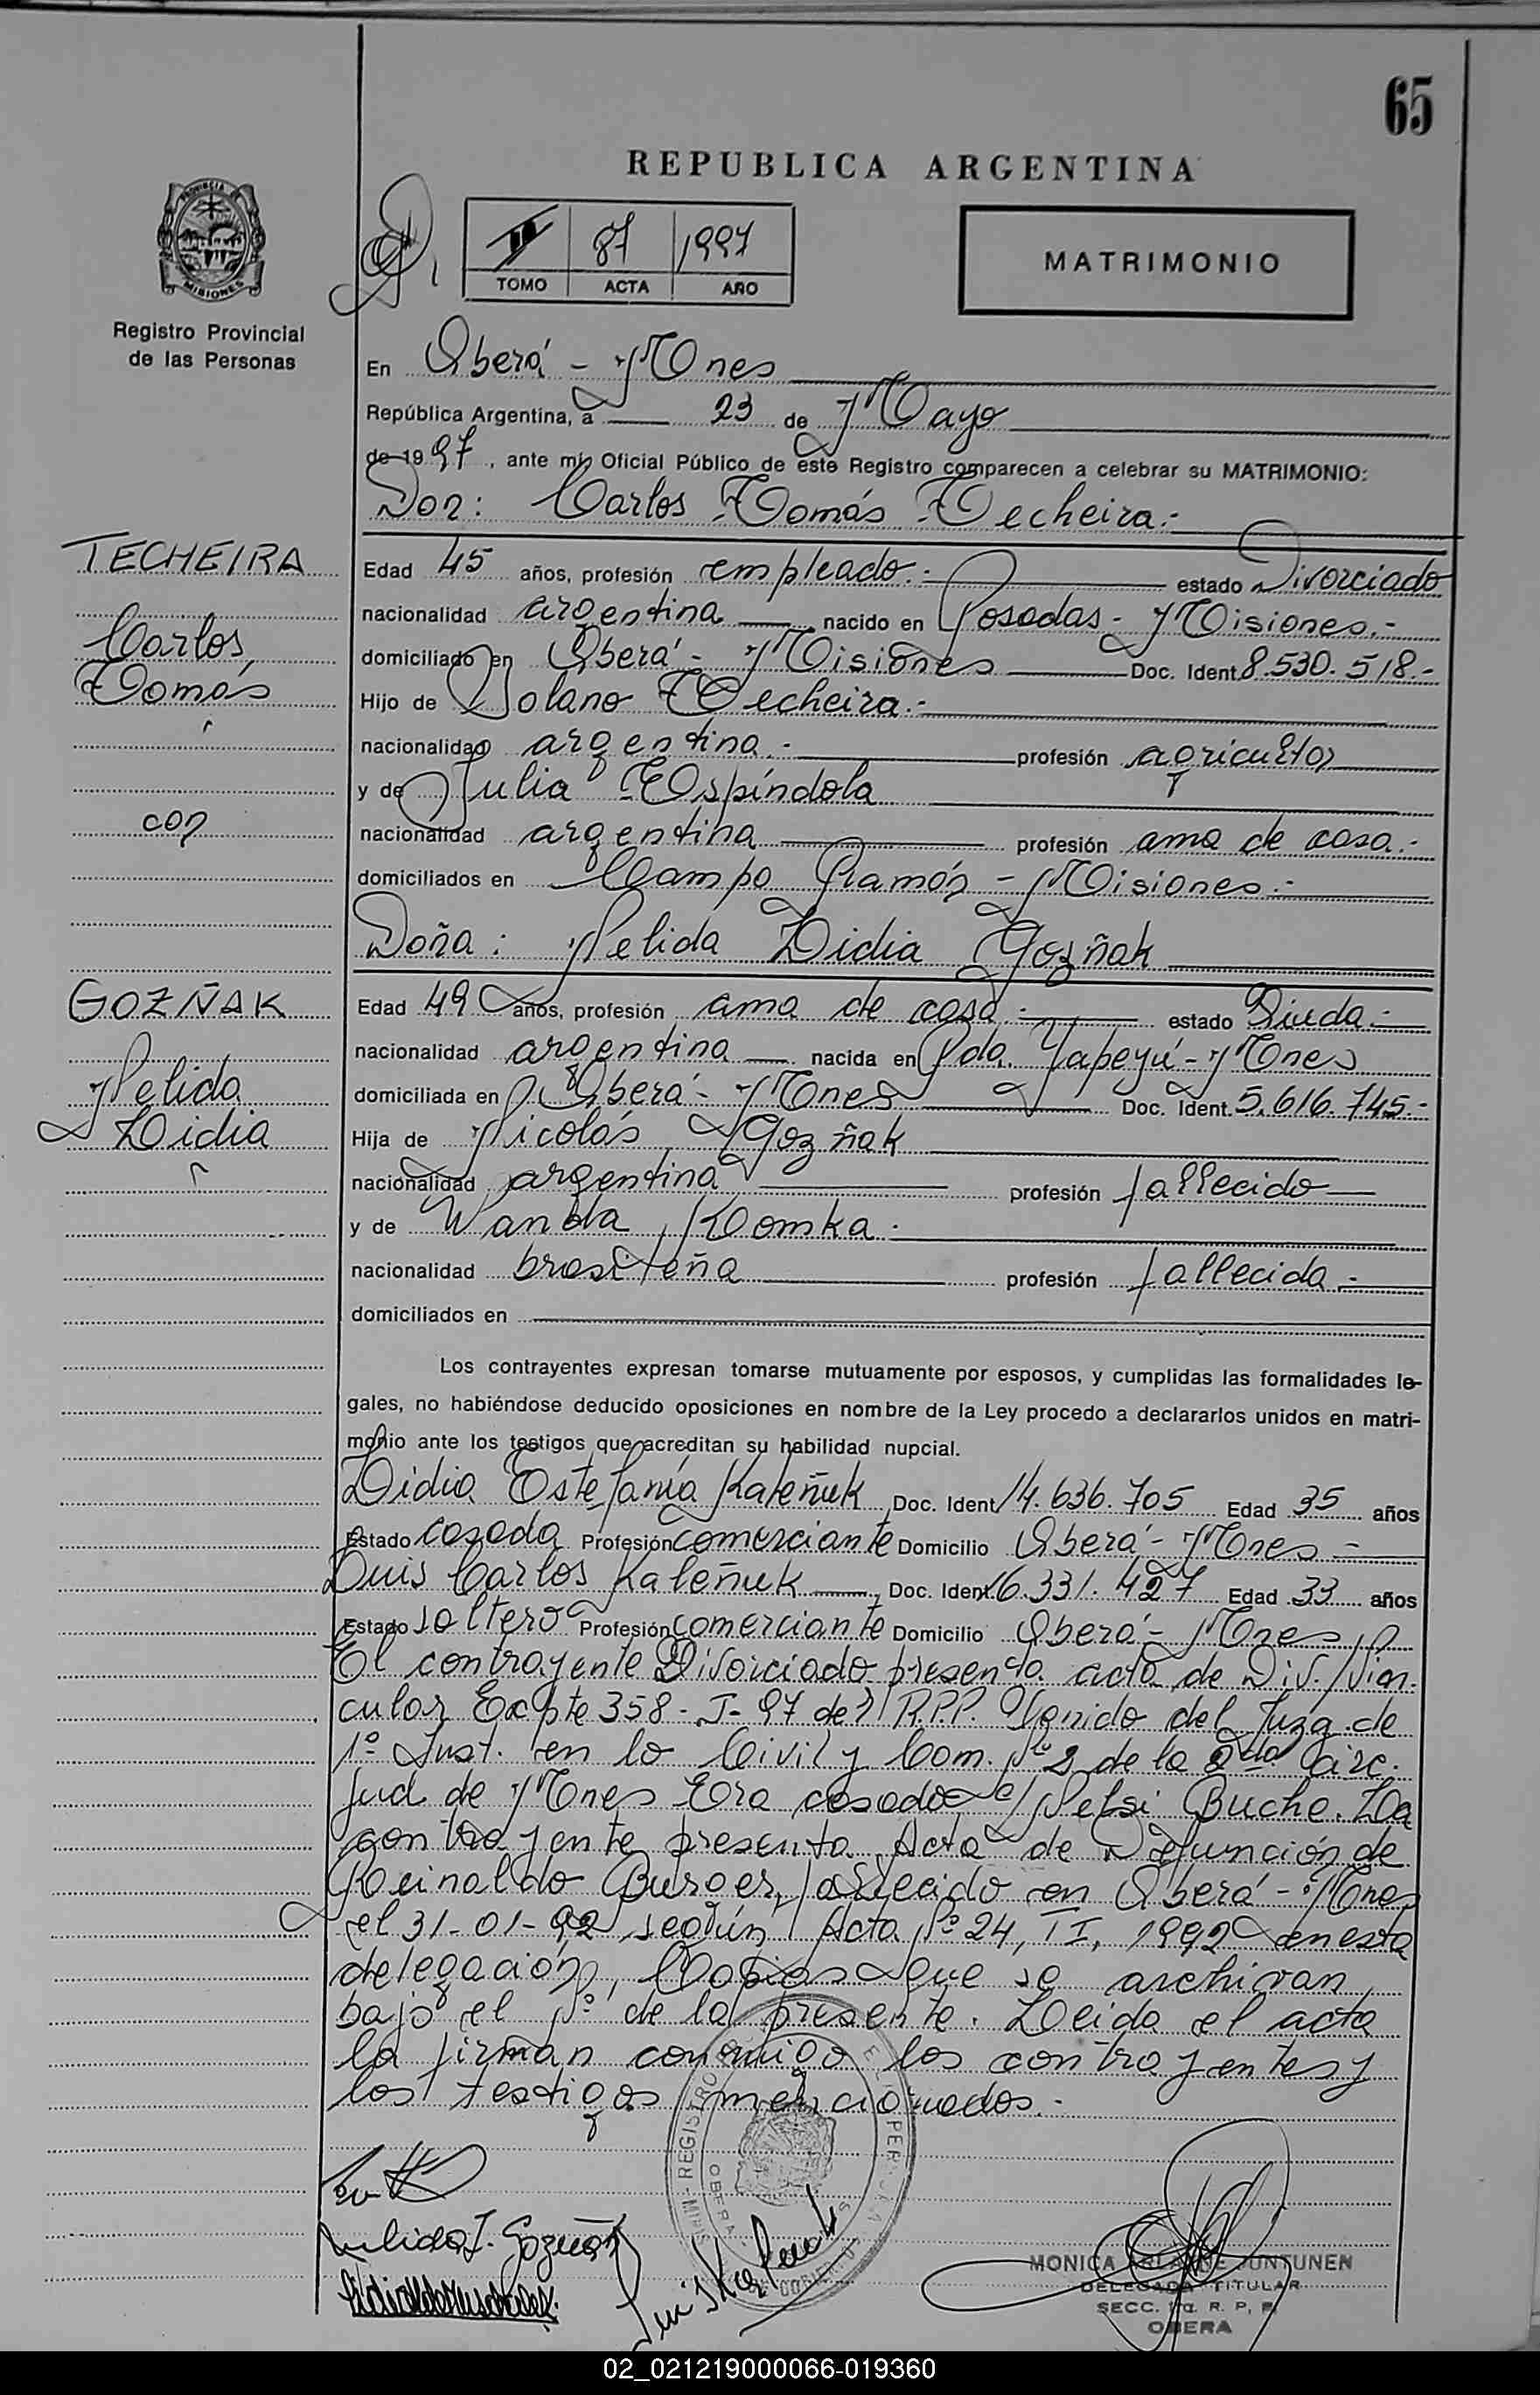 65
REPUBLICA ARGENTINA
PROVINCIA DE
MISIONES
Registro Provincial
de las Personas
II 87 1997
TOMO ACTA AÑO
MATRIMONIO
En Oberá - Mnes
República Argentina, a 23 de Mayo
de 1997, ante mi, Oficial Público de este Registro comparecen a celebrar su MATRIMONIO:
Don: Carlos Tomás Techeira.-
TECHEIRA
Carlos
Tomás
con
GOZÑAK
Nelida
Lidia
Edad 45 años, profesión empleado.- estado Divorciado
nacionalidad argentina nacido en Posadas - Misiones.-
domiciliado en Oberá - Misiones Doc. Ident. 8.530.518.-
Hijo de Solano Techeira.-
nacionalidad argentina.- profesión agricultor
y de Julia Espíndola
nacionalidad argentina profesión ama de casa.-
domiciliados en Campo Ramón - Misiones.-
Doña: Nelida Lidia Gozñak
Edad 49 años, profesión ama de casa.- estado Viuda.-
nacionalidad argentina nacida en Pda. Yapeyú - Mnes
domiciliada en Oberá - Mnes Doc. Ident. 5.616.745.-
Hija de Nicolás Gozñak
nacionalidad argentina profesión fallecido
y de Wanda Komka.
nacionalidad brasileña profesión fallecida.-
domiciliados en
Los contrayentes expresan tomarse mutuamente por esposos, y cumplidas las formalidades le-
gales, no habiéndose deducido oposiciones en nombre de la Ley procedo a declararlos unidos en matri-
monio ante los testigos que acreditan su habilidad nupcial.
Lidia Estefanía Kaleñuk Doc. Ident. 14.636.705 Edad 35 años
Estado casada Profesión comerciante Domicilio Oberá - Mnes -
Luis Carlos Kaleñuk, Doc. Ident. 16.331.427 Edad 33 años
Estado soltero Profesión comerciante Domicilio Oberá - Mnes
El contrayente Divorciado presenta acta de Div. Vin-
cular Expte 358-J-97 del R.P.P. Venido del Juzg. de
1º Inst. en lo Civil y Com. Nº 2 de la 2da Circ.
Jud. de Mnes Era casado c/ Nelsi Buche. La
contrayente presenta Acta de Defunción de
Reinaldo Burger, fallecido en Oberá - Mnes
el 31-01-92 según Acta Nº 24, II, 1992 en esta
delegación, Copias que se archivan
bajo el Nº de la presente. Leida el acta
la firman conmigo los contrayentes y
los testigos mencionados.-
Nelida L. Gozñak
Luis Kaleñuk
REGISTRO
OBERA
MONICA JUNTUNEN
DELEGADA TITULAR
SECC. 1ra. R. P. P.
OBERA
02_021219000066-019360